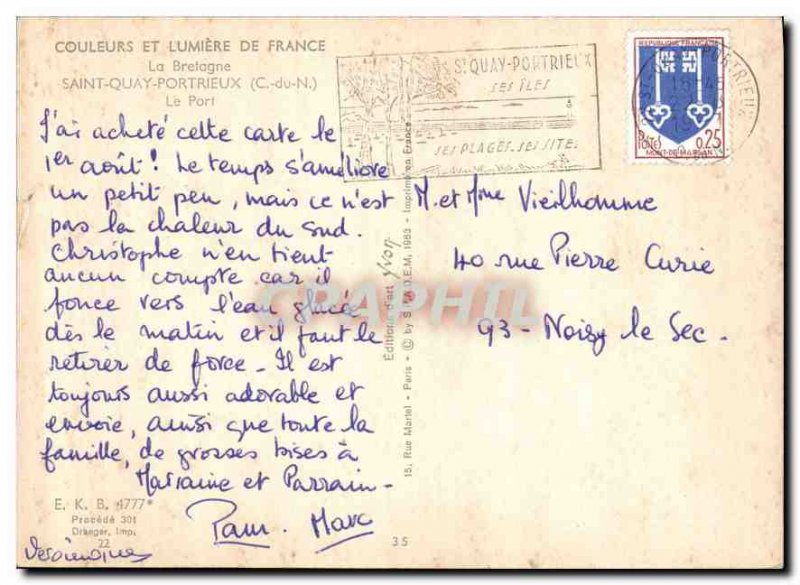 COULEURS ET LUMIÈRE DE FRANCE
La Bretagne
SAINT-QUAY-PORTRIEUX (C.-du-N.)
Le Port
J'ai acheté cette carte le
1er août ! Le temps s'améliore
un petit peu, mais ce n'est
pas la chaleur du sud.
Christophe n'en tient
aucun compte car il
fonce vers l'eau glacée
dès le matin et il faut le
retirer de force - Il est
toujours aussi adorable et
envoie, ainsi que toute la
famille, de grosses bises à
Marraine et Parrain -
Pam. Marc
E. K. B. 4777*
Procédé 301
Draeger, Imp.
22
35
Editions d'art yvon
15, Rue Martel - Paris - © by S.P.A.D.E.M. 1963 - Imprimé en France
ST QUAY-PORTRIEUX
SES ÎLES
SES PLAGES. SES SITES
REPUBLIQUE FRANÇAISE
POSTES
0,25
MONT-DE-MARSAN
M. et Mme Vieilhomme
40 rue Pierre Curie
93 - Noisy le Sec.
CPAPHIL